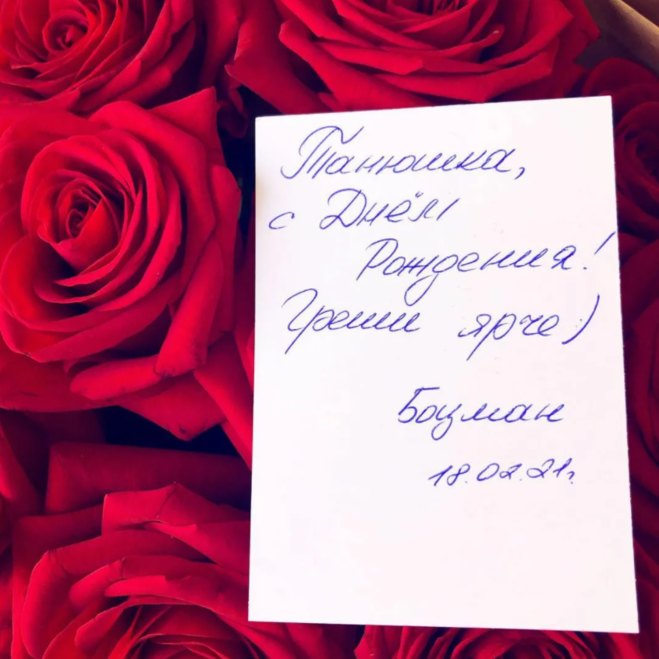 Танюшка,
с Днём
Рождения!
Греши ярче)
Боцман
18.02.21г.